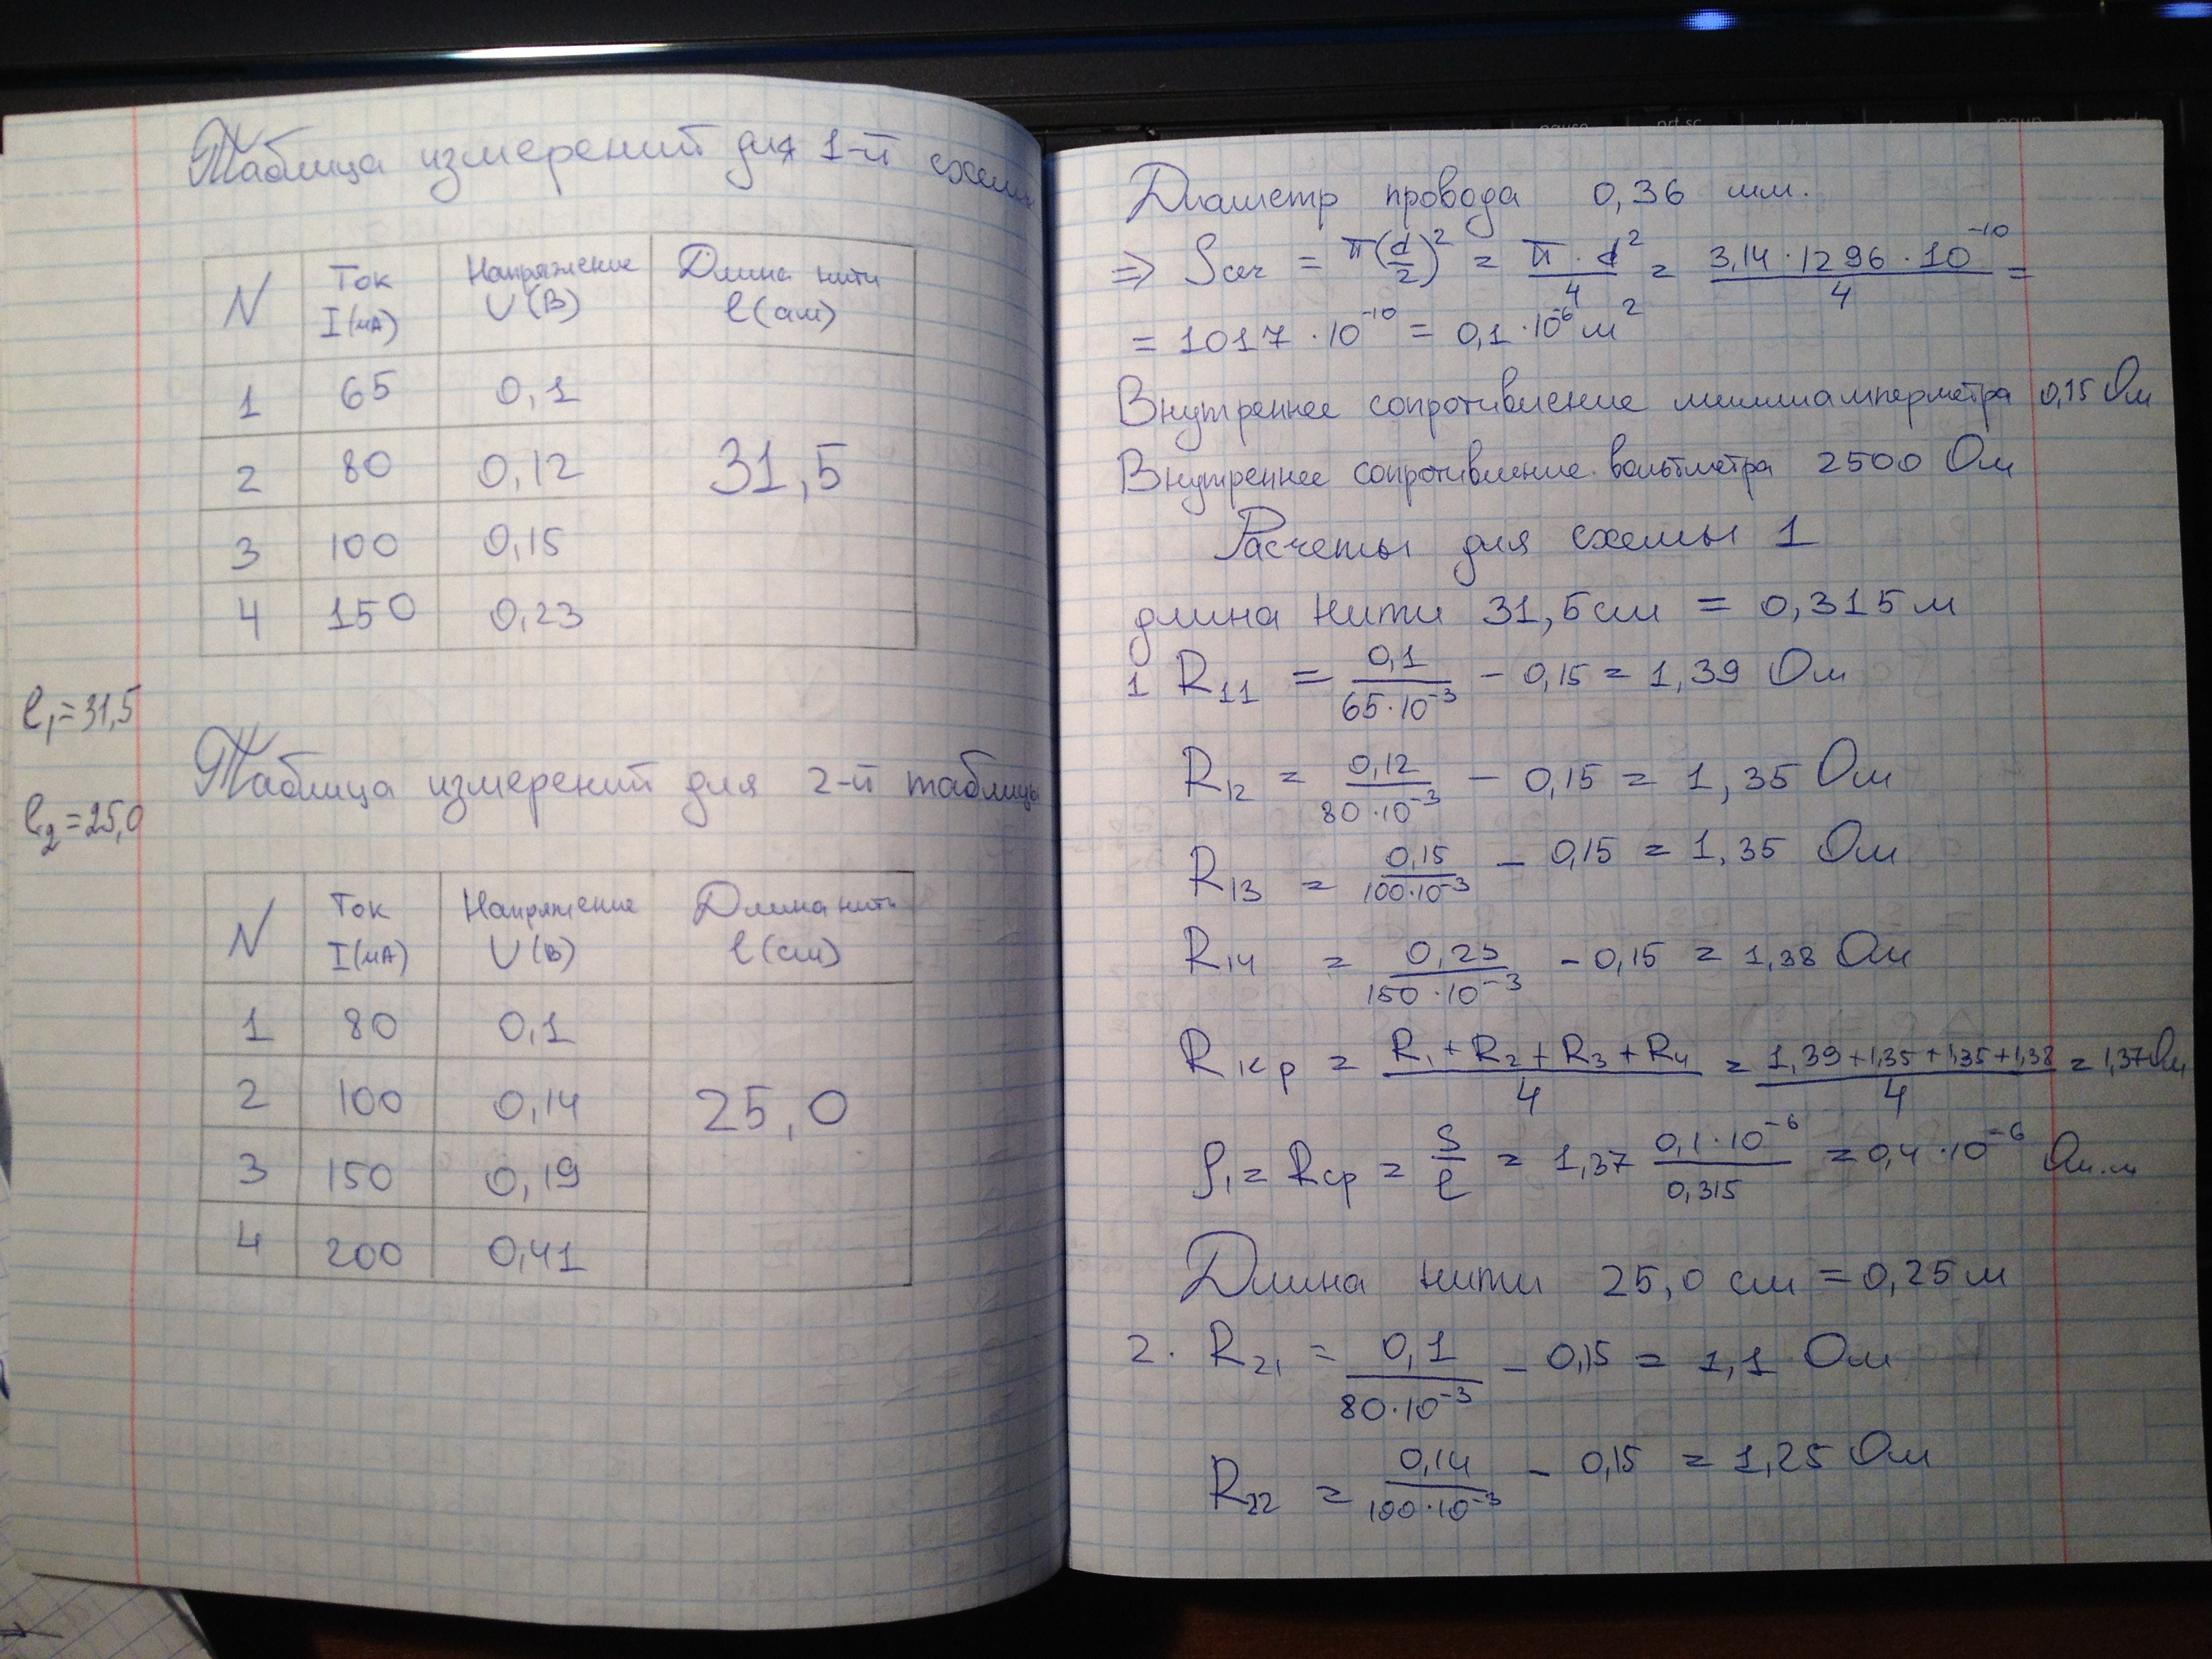 Таблица измерений для 1-й схемы
N Ток I(мА) Напряжение U(В) Длина нити l(см)
1 65 0,1
2 80 0,12 31,5
3 100 0,15
4 150 0,23
l₁=31,5
Таблица измерений для 2-й таблицы
l₂=25,0
N Ток I(мА) Напряжение U(В) Длина нити l(см)
1 80 0,1
2 100 0,14 25,0
3 150 0,19
4 200 0,41
prt sc
pause
Диаметр провода 0,36 мм.
=> Sсеч = π(d/2)² = π·d²/4 = 3,14·1296·10⁻¹⁰/4 =
= 1017·10⁻¹⁰ = 0,1·10⁻⁶ м²
Внутреннее сопротивление миллиамперметра 0,15 Ом
Внутреннее сопротивление вольтметра 2500 Ом
Расчеты для схемы 1
длина нити 31,5см = 0,315м
1 R₁₁ = 0,1/65·10⁻³ - 0,15 = 1,39 Ом
R₁₂ = 0,12/80·10⁻³ - 0,15 = 1,35 Ом
R₁₃ = 0,15/100·10⁻³ - 0,15 = 1,35 Ом
R₁₄ = 0,23/150·10⁻³ - 0,15 = 1,38 Ом
R₁ср = R₁+R₂+R₃+R₄/4 = 1,39+1,35+1,35+1,38/4 = 1,37Ом
ρ₁ = Rср = S/l = 1,37 0,1·10⁻⁶/0,315 = 0,4·10⁻⁶ Ом·м
Длина нити 25,0 см = 0,25м
2. R₂₁ = 0,1/80·10⁻³ - 0,15 = 1,1 Ом
R₂₂ = 0,14/100·10⁻³ - 0,15 = 1,25 Ом